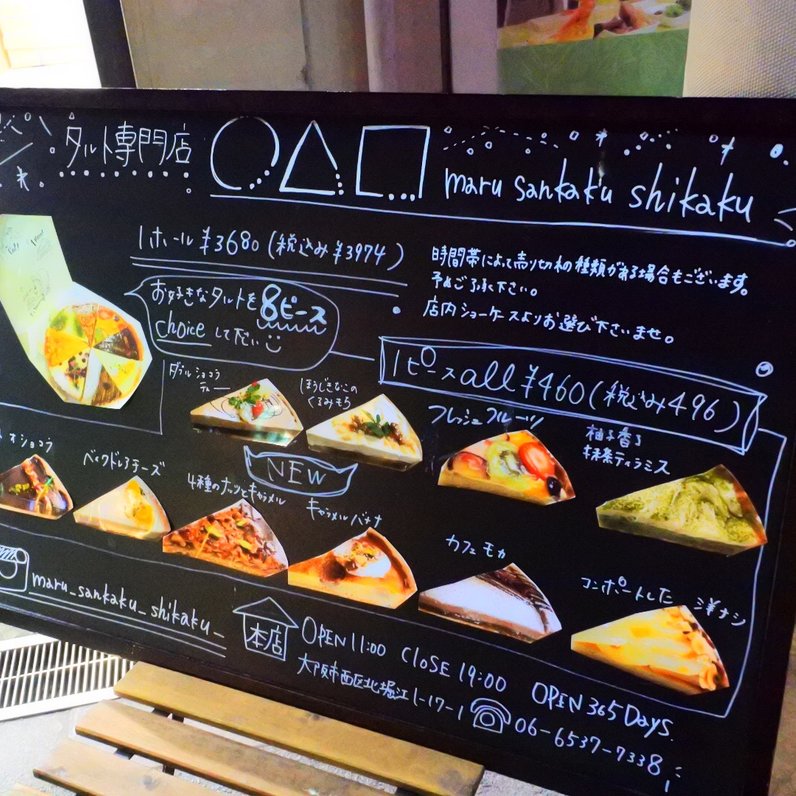 タルト専門店 ○△□ maru sankaku shikaku
1ホール ¥3680 (税込み ¥3974)
時間帯によって売り切れの種類がある場合もございます。
予めご了承下さい。
店内ショーケースよりお選び下さいませ。
お好きなタルトを8ピース
choice して下さい
1ピース all ¥460 (税込み 496)
ダブルショコラ
ティー
ほうじきなこの
くるみもち
フレッシュフルーツ
柚子香る
抹茶ティラミス
NEW
オショコラ
ベイクドレアチーズ
4種のナッツとキャラメル
キャラメルバナナ
カフェモカ
コンポートした 洋ナシ
maru_sankaku_shikaku_
本店
OPEN 11:00 CLOSE 19:00 OPEN 365 Days.
大阪市西区北堀江1-17-1 06-6537-7338